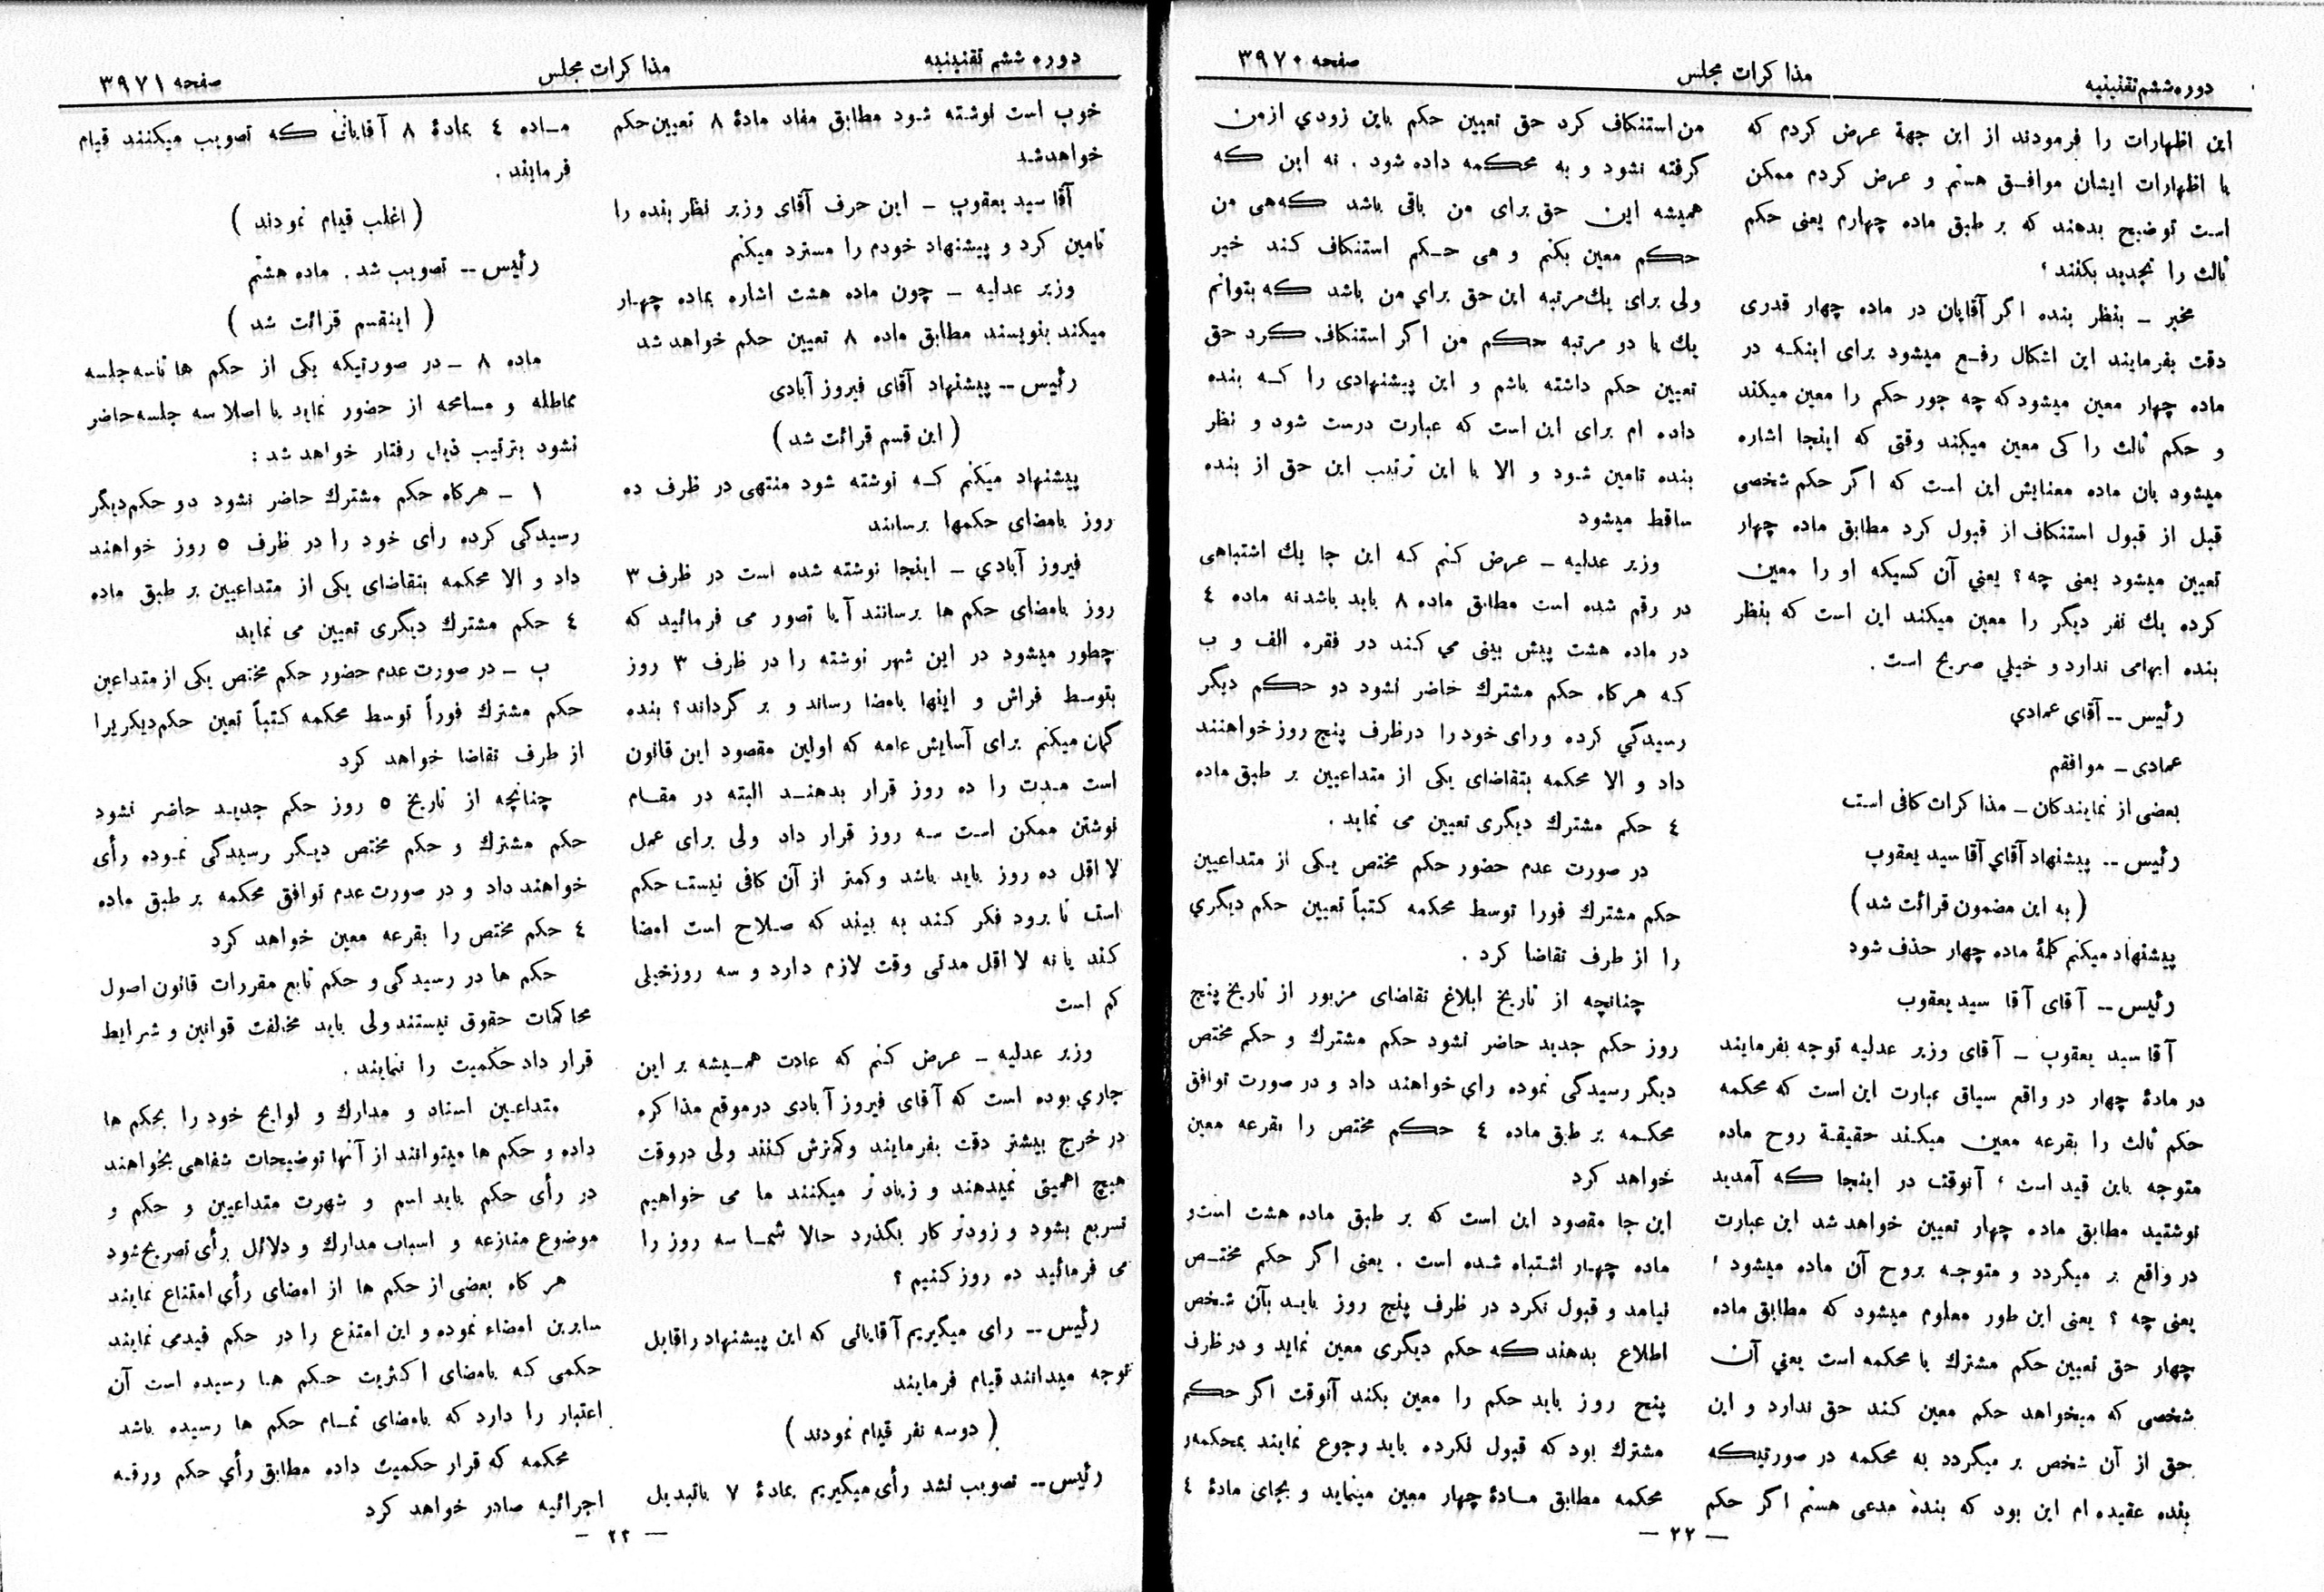 دوره ششم تقنینیه
مذاکرات مجلس
صفحه ۳۹۷۰
این اظهارات را فرمودند از این جهة عرض کردم که
با اظهارات ایشان موافق هستم و عرض کردم ممکن
است توضیح بدهند که بر طبق ماده چهارم یعنی حکم
ثالث را تجدید بکنند ؛
مخبر ـ بنظر بنده اگر آقایان در ماده چهار قدری
دقت بفرمایند این اشکال رفع میشود برای اینکه در
ماده چهار معین میشود که چه جور حکم را معین میکند
و حکم ثالث را کی معین میکند وقتی که اینجا اشاره
میشود بان ماده معنایش این است که اگر حکم شخصی
قبل از قبول استنکاف از قبول کرد مطابق ماده چهار
تعیین میشود یعنی چه ؟ یعني آن کسیکه او را معین
کرده یك نفر دیگر را معین میکند این است که بنظر
بنده ابهامی ندارد و خیلي صریح است .
رئیس ــ آقاي عمادي
عمادی ـ موافقم
بعضی از نمایندکان ـ مذاکرات کافی است
رئیس ــ پیشنهاد آقاي آقا سید یعقوب
( به این مضمون قرائت شد )
پیشنهاد میکنم کلمهٔ ماده چهار حذف شود
رئیس ــ آقای آقا سید یعقوب
آقا سید یعقوب ـ آقای وزیر عدلیه توجه بفرمایند
در مادهٔ چهار در واقع سیاق عبارت این است که محکمه
حکم ثالث را بقرعه معین میکند حقیقة روح ماده
متوجه باین قید است ؛ آنوقت در اینجا که آمدید
نوشتید مطابق ماده چهار تعیین خواهد شد این عبارت
در واقع بر میگردد و متوجه بروح آن ماده میشود ؛
یعنی چه ؟ یعنی این طور معلوم میشود که مطابق ماده
چهار حق تعیین حکم مشترك با محکمه است یعني آن
شخصی که میخواهد حکم معین کند حق ندارد و این
حق از آن شخص بر میگردد به محکمه در صورتیکه
بنده عقیده ام این بود که بنده مدعی هستم اگر حکم
من استنکاف کرد حق تعیین حکم باین زودي از من
گرفته نشود و به محکمه داده شود . نه این که
همیشه این حق برای من باقی باشد که هی من
حکم معین بکنم و هی حکم استنکاف کند خیر
ولی برای یك مرتبه این حق براي من باشد که بتوانم
یك یا دو مرتبه حکم من اگر استنکاف کرد حق
تعیین حکم داشته باشم و این پیشنهادی را که بنده
داده ام برای این است که عبارت درست شود و نظر
بنده تامین شود و الا با این ترتیب این حق از بنده
ساقط میشود
وزیر عدلیه ـ عرض کنم که این جا یك اشتباهی
در رقم شده است مطابق ماده ۸ باید باشد نه ماده ٤
در ماده هشت پیش بینی مي کند در فقره الف و ب
که هرکاه حکم مشترك حاضر نشود دو حکم دیگر
رسیدگي کرده و رای خود را در ظرف پنج روز خواهنند
داد و الا محکمه بتقاضای یکی از متداعیین بر طبق ماده
٤ حکم مشترك دیگری تعیین می نماید .
در صورت عدم حضور حکم مختص یکی از متداعیین
حکم مشترك فورا توسط محکمه کتباً تعیین حکم دیگري
را از طرف تقاضا کرد .
چنانچه از تاریخ ابلاغ تقاضای مزبور از تاریخ پنج
روز حکم جدید حاضر نشود حکم مشترك و حکم مختص
دیگر رسیدگی نموده راي خواهند داد و در صورت توافق
محکمه بر طبق ماده ٤ حکم مختص را بقرعه معین
خواهد کرد
این جا مقصود این است که بر طبق ماده هشت است و
ماده چهار اشتباه شده است . یعنی اگر حکم مختص
نیامد و قبول نکرد در ظرف پنج روز باید بآن شخص
اطلاع بدهند که حکم دیگری معین نماید و در ظرف
پنج روز باید حکم را معین بکند آنوقت اگر حکم
مشترك بود که قبول نکرده باید رجوع نمایند بمحکمه و
محکمه مطابق مادهٔ چهار معین مینماید و بجای مادهٔ ٤
— ۲۲ —
دوره ششم تقنینیه
مذاکرات مجلس
صفحه ۳۹۷۱
خوب است نوشته شود مطابق مفاد مادهٔ ۸ تعیین حکم
خواهد شد
آقا سید یعقوب ـ این حرف آقای وزیر نظر بنده را
تامین کرد و پیشنهاد خودم را مسترد میکنم
وزیر عدلیه ـ چون ماده هشت اشاره بماده چهار
میکند بنویسند مطابق ماده ۸ تعیین حکم خواهد شد
رئیس ــ پیشنهاد آقای فیروز آبادی
( این قسم قرائت شد )
پیشنهاد میکنم که نوشته شود منتهی در ظرف ده
روز بامضای حکمها برسانند
فیروز آبادي ـ اینجا نوشته شده است در ظرف ۳
روز بامضای حکم ها برسانند آیا تصور می فرمائید که
چطور میشود در این شهر نوشته را در ظرف ۳ روز
بتوسط فراش و اینها بامضا رساند و بر گرداند ؟ بنده
گمان میکنم برای آسایش عامه که اولین مقصود این قانون
است مدت را ده روز قرار بدهند البته در مقام
نوشتن ممکن است سه روز قرار داد ولی برای عمل
لا اقل ده روز باید باشد و کمتر از آن کافی نیست حکم
است تا برود فکر کند به بیند که صلاح است امضا
کند یا نه لا اقل مدتی وقت لازم دارد و سه روز خیلی
کم است
وزیر عدلیه ـ عرض کنم که عادت همیشه بر این
جاري بوده است که آقای فیروز آبادی در موقع مذاکره
در خرج بیشتر دقت بفرمایند و کمترش کنند ولی در وقت
هیچ اهمیتی نمیدهند و زیاد تر میکنند ما می خواهیم
تسریع بشود و زودتر کار بگذرد حالا شما سه روز را
می فرمائید ده روز کنیم ؟
رئیس ــ رای میگیریم آقایانی که این پیشنهاد را قابل
توجه میدانند قیام فرمایند
( دو سه نفر قیام نمودند )
رئیس ــ تصویب نشد رأی میگیریم بمادهٔ ۷ باتبدیل
ماده ٤ بمادهٔ ۸ آقایانی که تصویب میکنند قیام
فرمایند .
( اغلب قیام نمودند )
رئیس ــ تصویب شد . ماده هشتم
( اینقسم قرائت شد )
ماده ۸ ـ در صورتیکه یکی از حکم ها تا سه جلسه
مماطله و مسامحه از حضور نماید یا اصلا سه جلسه حاضر
نشود بترتیب ذیل رفتار خواهد شد :
۱ ـ هرکاه حکم مشترك حاضر نشود دو حکم دیگر
رسیدگی کرده رأی خود را در ظرف ٥ روز خواهند
داد و الا محکمه بتقاضای یکی از متداعیین بر طبق ماده
٤ حکم مشترك دیگری تعیین می نماید
ب ـ در صورت عدم حضور حکم مختص یکی از متداعین
حکم مشترك فوراً توسط محکمه کتباً تعین حکم دیکریرا
از طرف تقاضا خواهد کرد
چنانچه از تاریخ ٥ روز حکم جدید حاضر نشود
حکم مشترك و حکم مختص دیگر رسیدگی نموده رأی
خواهند داد و در صورت عدم توافق محکمه بر طبق ماده
٤ حکم مختص را بقرعه معین خواهد کرد
حکم ها در رسیدگی و حکم تابع مقررات قانون اصول
محاکمات حقوق نیستند ولی باید مخالفت قوانین و شرایط
قرار داد حکمیت را ننمایند .
متداعین اسناد و مدارك و لوایح خود را بحکم ها
داده و حکم ها میتوانند از آنها توضیحات شفاهی بخواهند
در رأی حکم باید اسم و شهرت متداعیین و حکم و
موضوع منازعه و اسباب مدارك و دلائل رأی تصریح شود
هر کاه بعضی از حکم ها از امضای رأی امتناع نمایند
سایرین امضاء نموده و این امتنع را در حکم قیدمی نمایند
حکمی که بامضای اکثریت حکم ها رسیده است آن
اعتبار را دارد که بامضای تمام حکم ها رسیده باشد
محکمه که قرار حکمیت داده مطابق رأي حکم ورقه
اجرائیه صادر خواهد کرد
— ۲۲ —